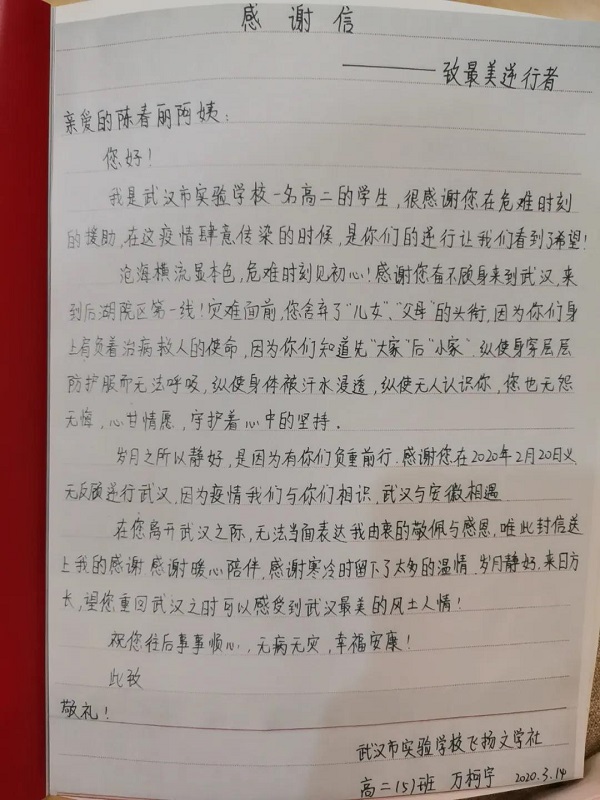 感 谢 信
——致最美逆行者
亲爱的陈春丽阿姨：
您好！
我是武汉市实验学校一名高二的学生，很感谢您在危难时刻
的援助，在这疫情肆意传染的时候，是你们的逆行让我们看到了希望！
沧海横流显本色，危难时刻见初心！感谢您奋不顾身来到武汉，来
到后湖院区第一线！灾难面前，您舍弃了“儿女”、“父母”的头衔，因为你们身
上有负着治病救人的使命，因为你们知道先“大家”后“小家”. 纵使身穿层层
防护服而无法呼吸，纵使身体被汗水浸透，纵使无人认识你，您也无怨
无悔，心甘情愿，守护着心中的坚持.
岁月之所以静好，是因为有你们负重前行. 感谢您在2020年2月20日义
无反顾逆行武汉. 因为疫情我们与你们相识，武汉与安徽相遇.
在您离开武汉之际，无法当面表达我由衷的敬佩与感恩，唯此封信送
上我的感谢. 感谢暖心陪伴，感谢寒冷时留下了太多的温情. 岁月静好，来日方
长，望您重回武汉之时可以感受到武汉最美的风土人情！
祝您往后事事顺心，无病无灾，幸福安康！
此致
敬礼！
武汉市实验学校飞扬文学社
高二（5）班 万柯宇 2020.3.14